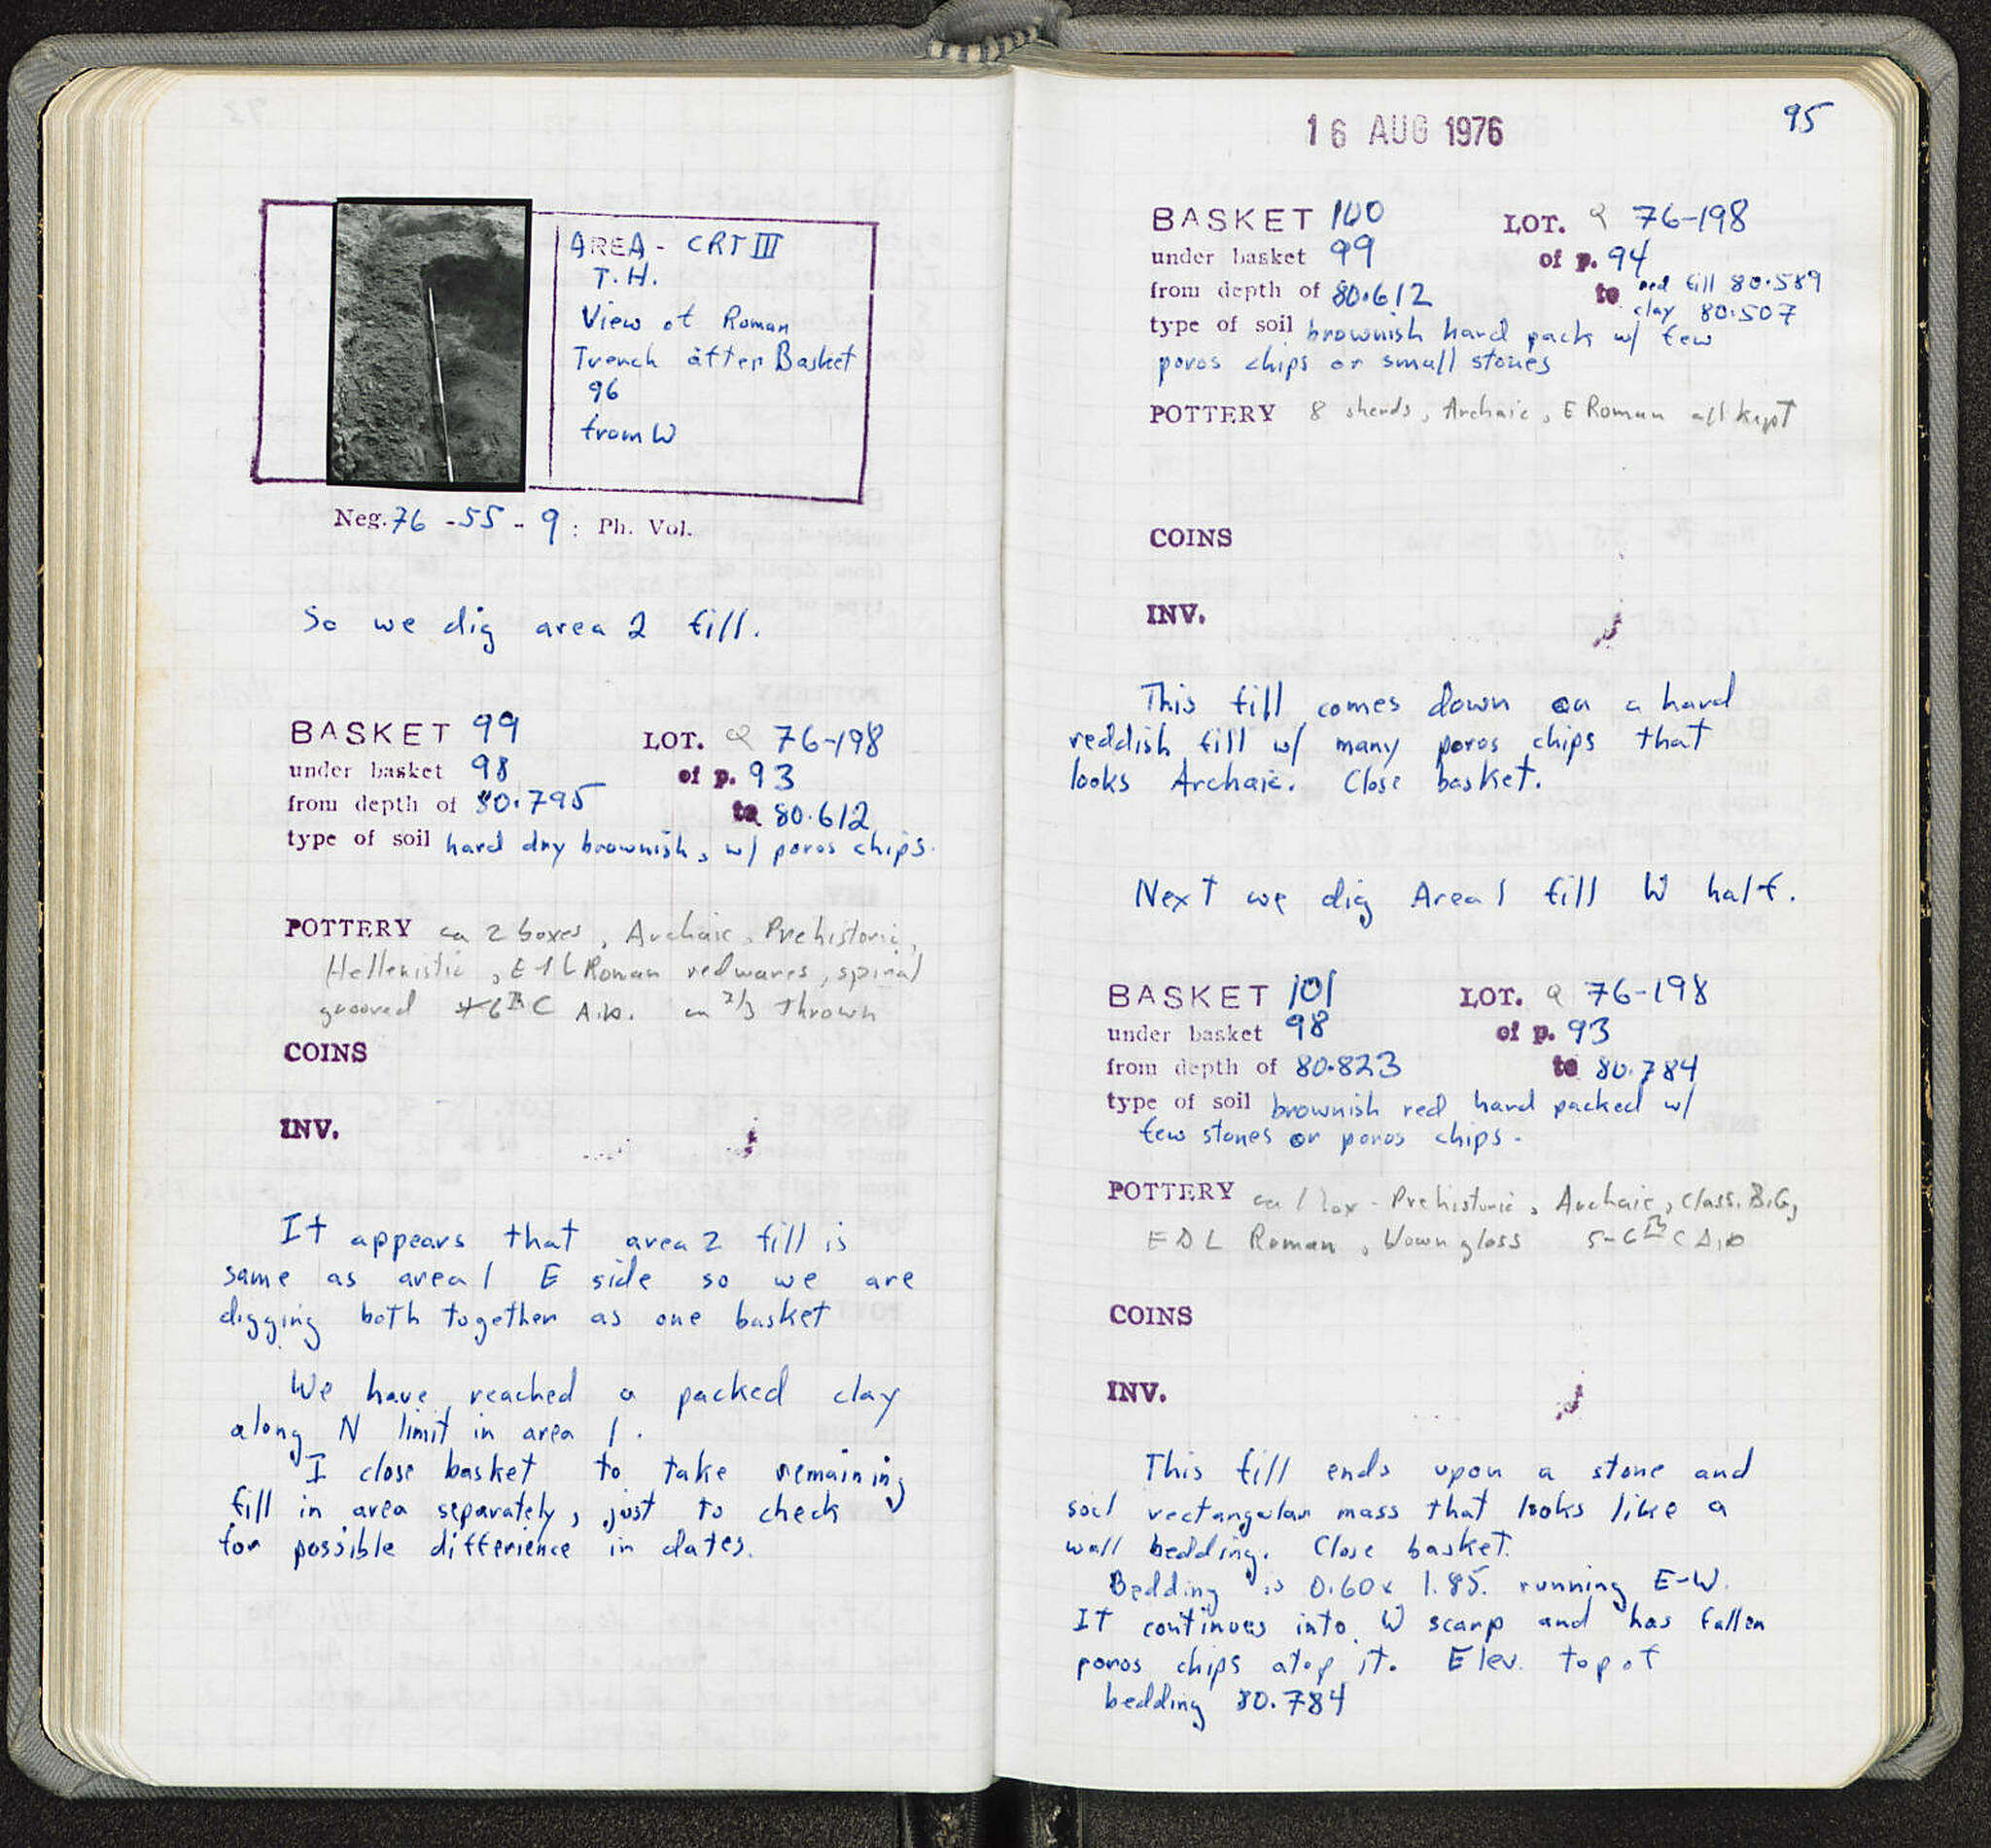 AREA - CRT III
T.H.
View of Roman
Trench after Basket
96
from W
Neg. 76 - 55 - 9 : Ph. Vol.
So we dig area 2 fill.
BASKET 99 LOT. 76-198
under basket 98 of p. 93
from depth of 80.795 to 80.612
type of soil hard dry brownish, w/ poros chips.
POTTERY ca 2 boxes, Archaic, Prehistoric,
Hellenistic, E + L Roman redwares, spiral
grooved 6th C A.D. ca 2/3 thrown
COINS
INV.
It appears that area 2 fill is
same as area 1 E side so we are
digging both together as one basket
We have reached a packed clay
along N limit in area 1.
I close basket to take remaining
fill in area separately, just to check
for possible differience in dates.
16 AUG 1976
95
BASKET 100 LOT. 76-198
under basket 99 of p. 94
from depth of 80.612 to red fill 80.589
clay 80.507
type of soil brownish hard pack w/ few
poros chips or small stones
POTTERY 8 sherds, Archaic, E Roman all kept
COINS
INV.
This fill comes down on a hard
reddish fill w/ many poros chips that
looks Archaic. Close basket.
Next we dig Area 1 fill W half.
BASKET 101 LOT. 76-198
under basket 98 of p. 93
from depth of 80.823 to 80.784
type of soil brownish red hard packed w/
few stones or poros chips.
POTTERY ca 1 box - Prehistoric, Archaic, Class. B.G,
E L Roman, glass 5-6th C A.D
COINS
INV.
This fill ends upon a stone and
soil rectangular mass that looks like a
wall bedding. Close basket.
Bedding is 0.60 x 1.85. running E-W.
It continues into W scarp and has fallen
poros chips atop it. Elev. top of
bedding 80.784